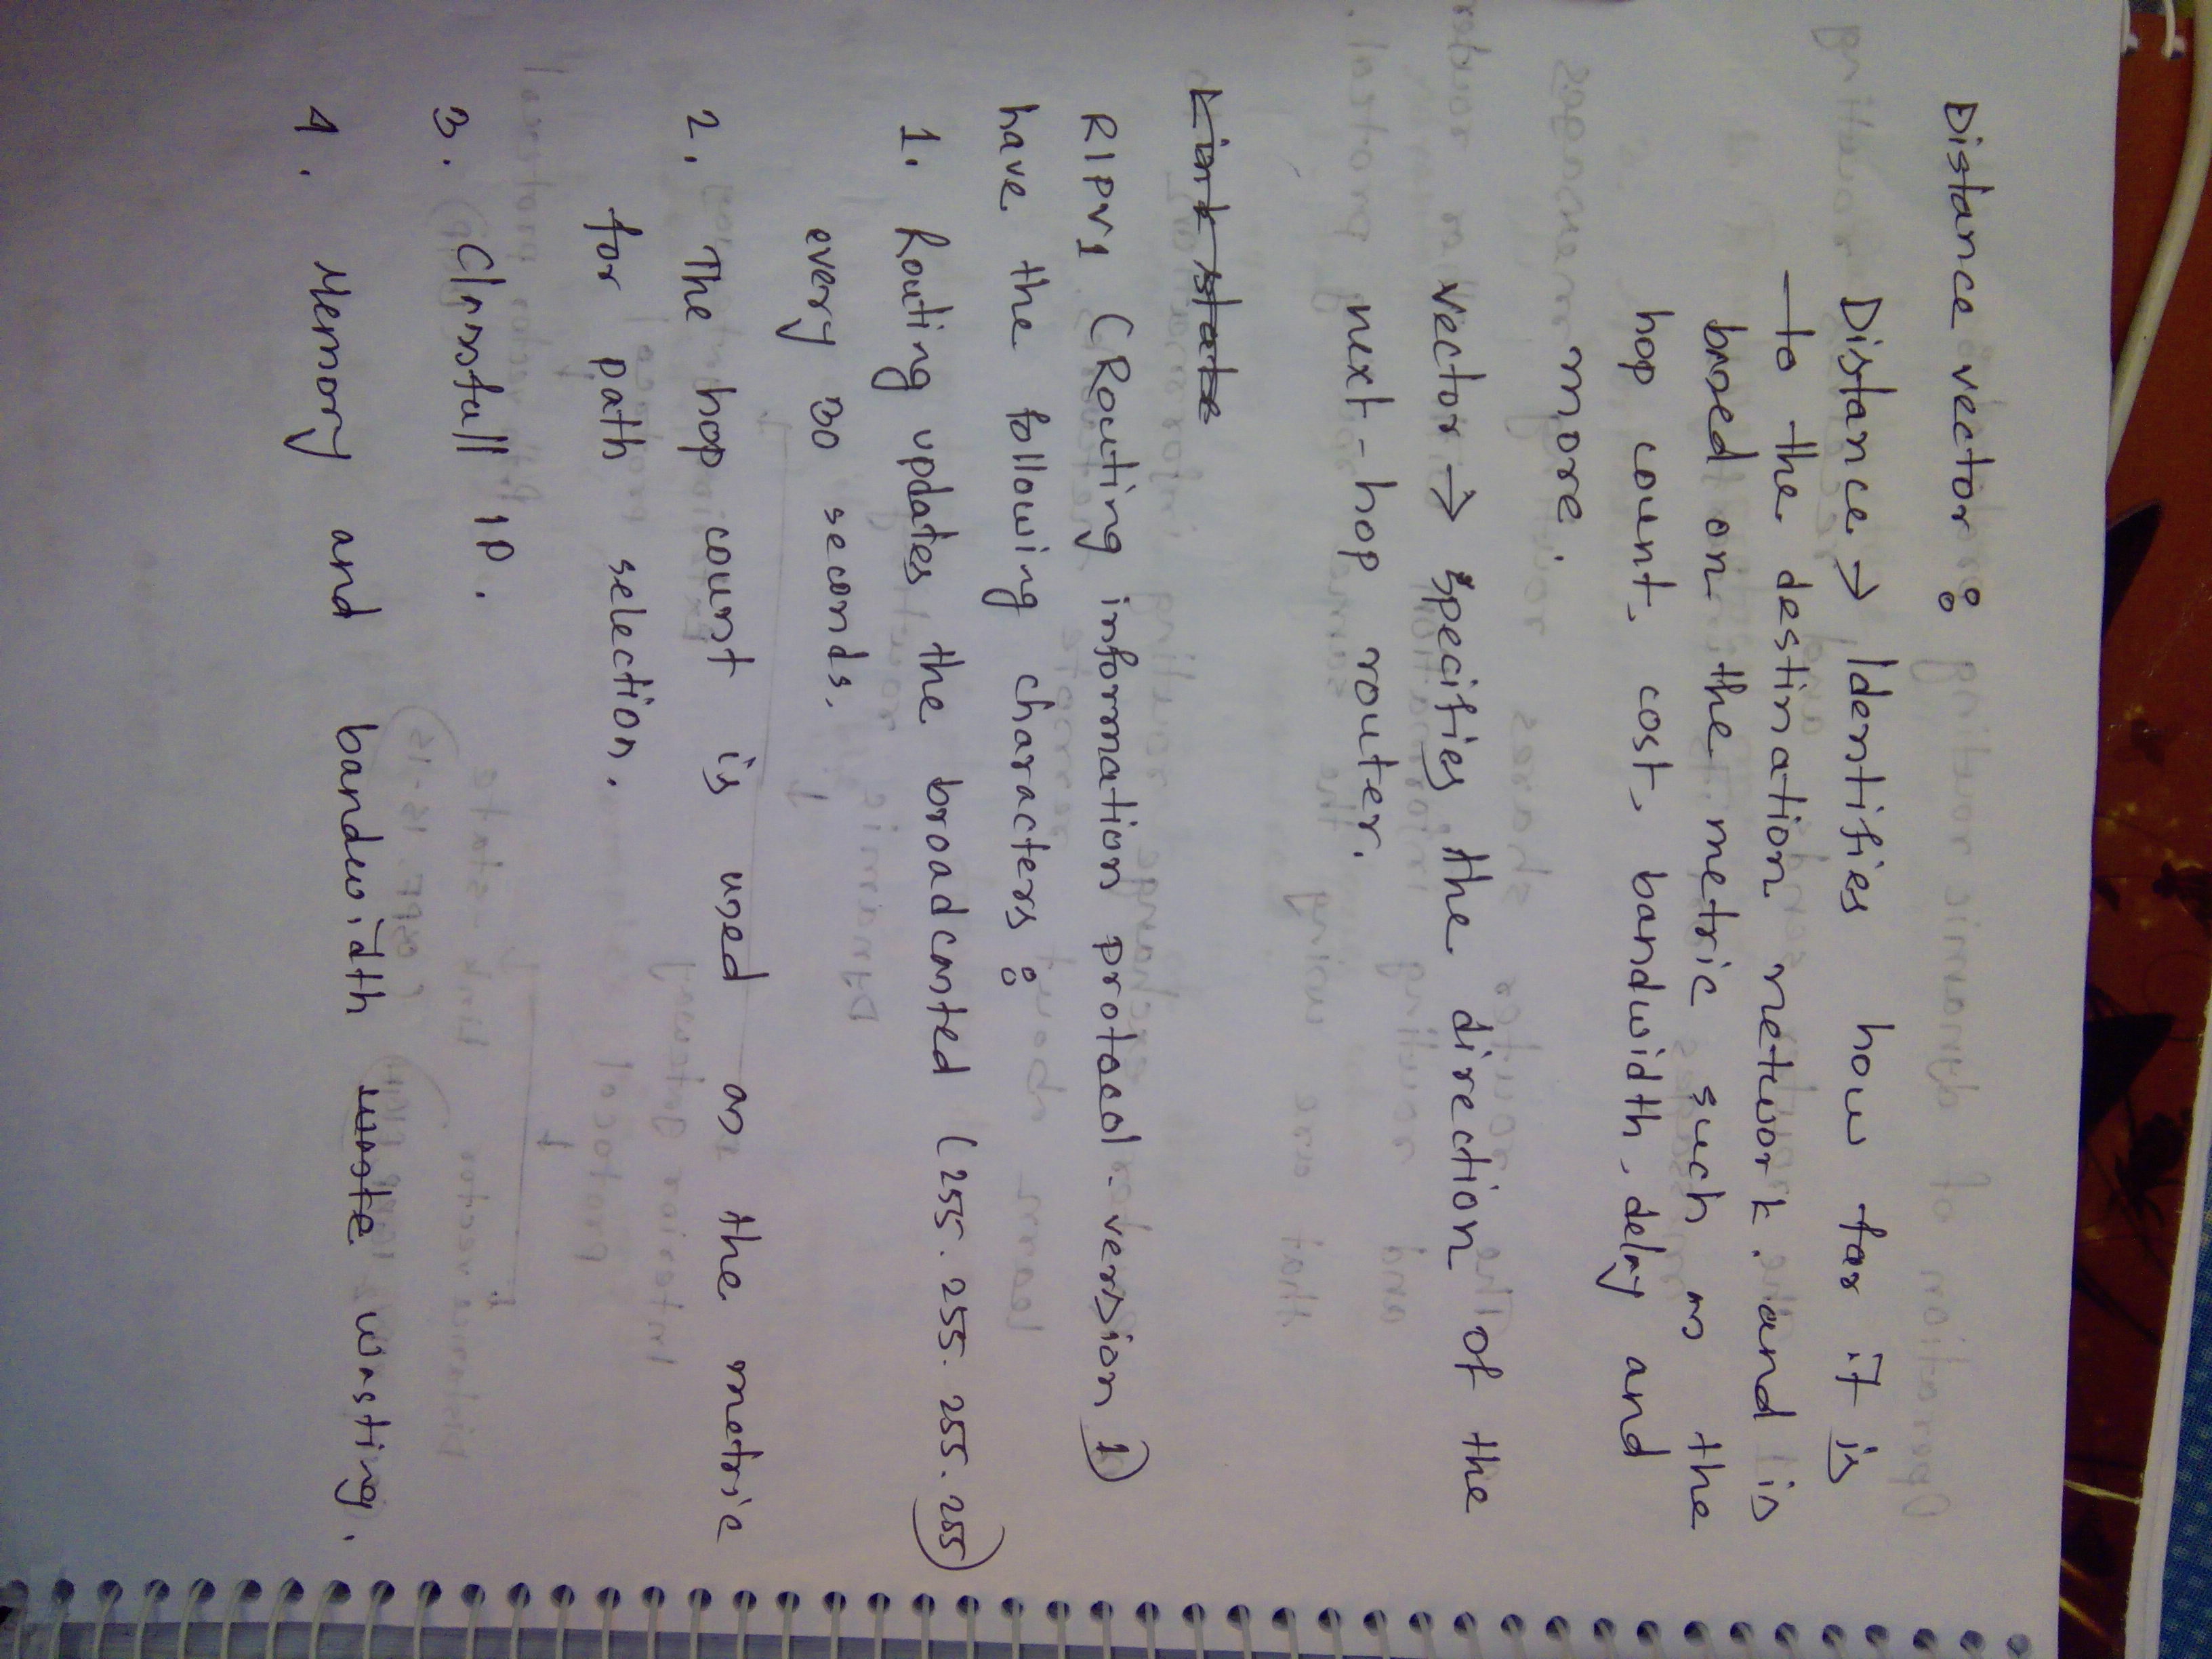 Distance vector :
Distance → Identifies how far it is
to the destination network. and is
based on the metric such as the
hop count, cost, bandwidth, delay and
more.
vector → specifies the direction of the
next-hop router.
Link state
RIPV1 (Routing information protocol - version 1)
have the following characters :
1. Routing updates the broadcasted (255.255.255.255)
every 30 seconds.
2. The hop count is used as the metric
for path selection.
3. Classfull IP.
4. Memory and bandwidth waste wasting.